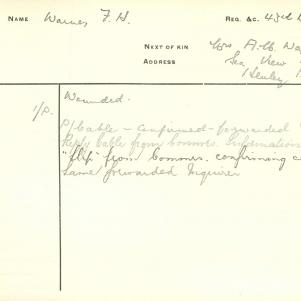 NAME Warnes F. H. REG. &C. 43rd
NEXT OF KIN Mrs A. W. Wa
ADDRESS Sea View
Henley
1/P. Wounded.
P/Cable - confirmed - forwarded
Reply cable from Commrs. Information
"flip" from Commrs. confirming c
same forwarded Inquirer